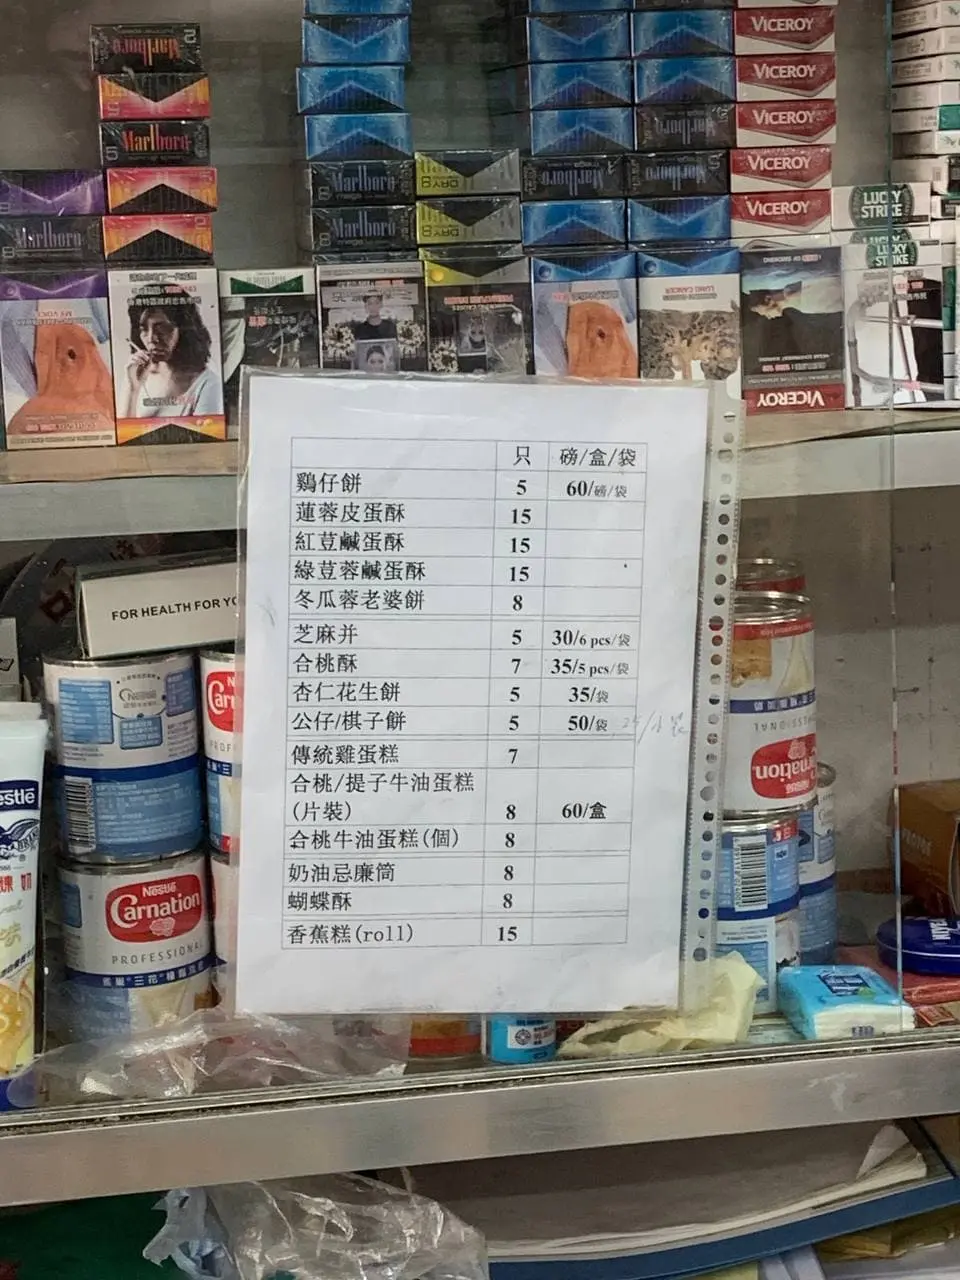 Marlboro
VICEROY
Marlboro
VICEROY
VICEROY
Marlboro
VICEROY
LUCKY STRIKE
Marlboro
VICEROY
LUCKY STRIKE
LUNG CANCER
VICEROY
只 磅/盒/袋
鷄仔餅 5 60/磅/袋
蓮蓉皮蛋酥 15
紅荳鹹蛋酥 15
綠荳蓉鹹蛋酥 15
冬瓜蓉老婆餅 8
芝麻并 5 30/6 pcs/袋
合桃酥 7 35/5 pcs/袋
杏仁花生餅 5 35/袋
公仔/棋子餅 5 50/袋
傳統雞蛋糕 7
合桃/提子牛油蛋糕
(片裝) 8 60/盒
合桃牛油蛋糕(個) 8
奶油忌廉筒 8
蝴蝶酥 8
香蕉糕(roll) 15
FOR HEALTH FOR YO
Nestlé
Carnation
PROFESSIONAL
雀巢"三花"
estlé
Carnation
NIVEA